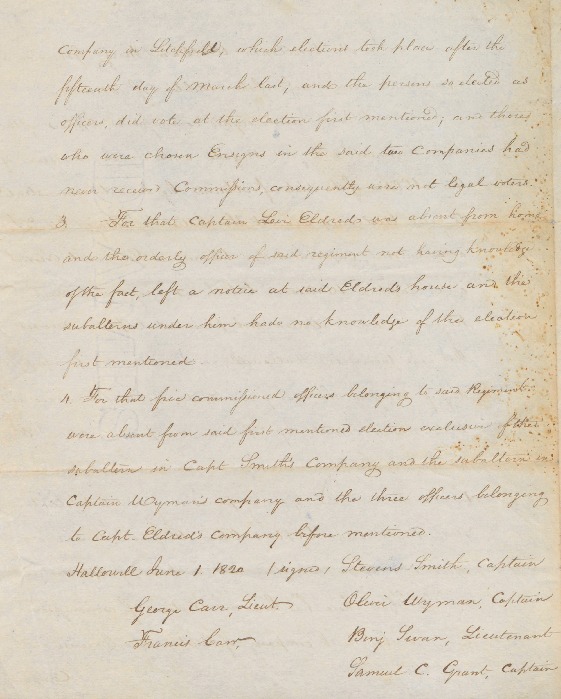 Company in Litchfield, which elections took place after the
fifteenth day of March last, and the persons so elected as
officers, did vote at the election first mentioned; and those
who were chosen Ensigns in the said two Companies had
never received Commissions, consequently were not legal voters.
3. For that Captain Levi Eldreds was absent from home
and the orderly officer of said regiment not having knowledge
of the fact, left a notice at said Eldreds house and the
subalterns under him had no knowledge of the election
first mentioned
4. For that five commissioned officers belonging to said Regiment
were absent from said first mentioned election exclusive of the
subaltern in Capt Smith's Company and the subaltern in
Captain Wyman's company and the three officers belonging
to Capt. Eldred's company before mentioned.
Hallowell June 1 1820 (signed) Stevens Smith, Captain
George Carr, Lieut. Oliver Wyman, Captain
Francis Carr, Benj Swan, Lieutenant
Samuel C. Grant, Captain